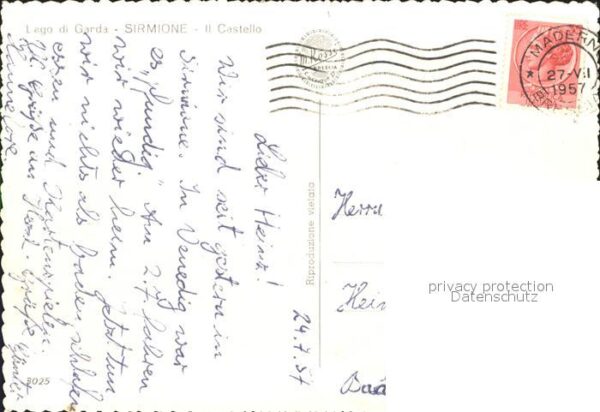 Lago di Garda - SIRMIONE - Il Castello
MADERN
27-VII
1957
24.7.57
Lieber Heinz!
Wir sind seit gestern in
Sirmione. In Venedig war
es "pfundig". Am 2.7 fahren
wir wieder heim. Jetzt tun
wir nichts als baden, schlafen
essen und Kartenspielen.
Viele Grüße an
Grüße Günter
Hannelore
Riproduzione vietata
Herrn
Hein
privacy protection
Datenschutz
8025